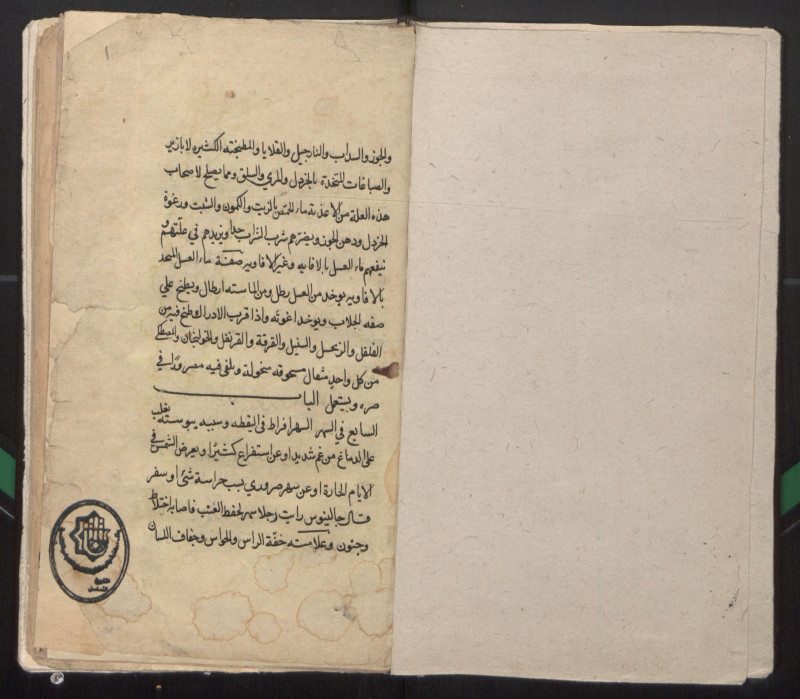 والجوز والسداب والنارجيل والقلايا والمطنجنه الكثيره الابازير
والصباغات المتخذة بالخردل والمري والسلق ومما يصلح لاصحاب
هذه العلة من الاغذية ماء الحمص بالزيت والكمون والشبت ورغوة
الخردل ودهن الجوز ويضرهم شرب الشراب جدا ويزيدهم في علتهم و
ينفعهم ماء العسل بالافاويه وغير الافاويه صفة ماء العسل المتخذ
بالافاويه يوخد من العسل رطل ومن الما سته ارطال ويطبخ علي
صفه الجلاب ويوخد رغوته واذا قرب الادراك طرح فيه من
الفلفل والزنجبيل والسنبل والقرفة والقرنفل والخولنجان والمصطكى
من كل واحد مثقال مسحوقه منخولة ويلقى فيه مصرورًا في
صره ويستعمل الباب
السابع في السهر السهر افراط في اليقظه وسببه يبوسته تغلب
على الدماغ من غم شديد او عن استفراغ كثير او يعرض الشمس في
الايام الحارة او عن سهر ضروري بسبب حراسة شئ او سفر
قال جالينوس رايت رجلا سهر لحفظ العنب فاصابه اختلاط
وجنون وعلامته خفة الراس والحواس وجفاف اللسان